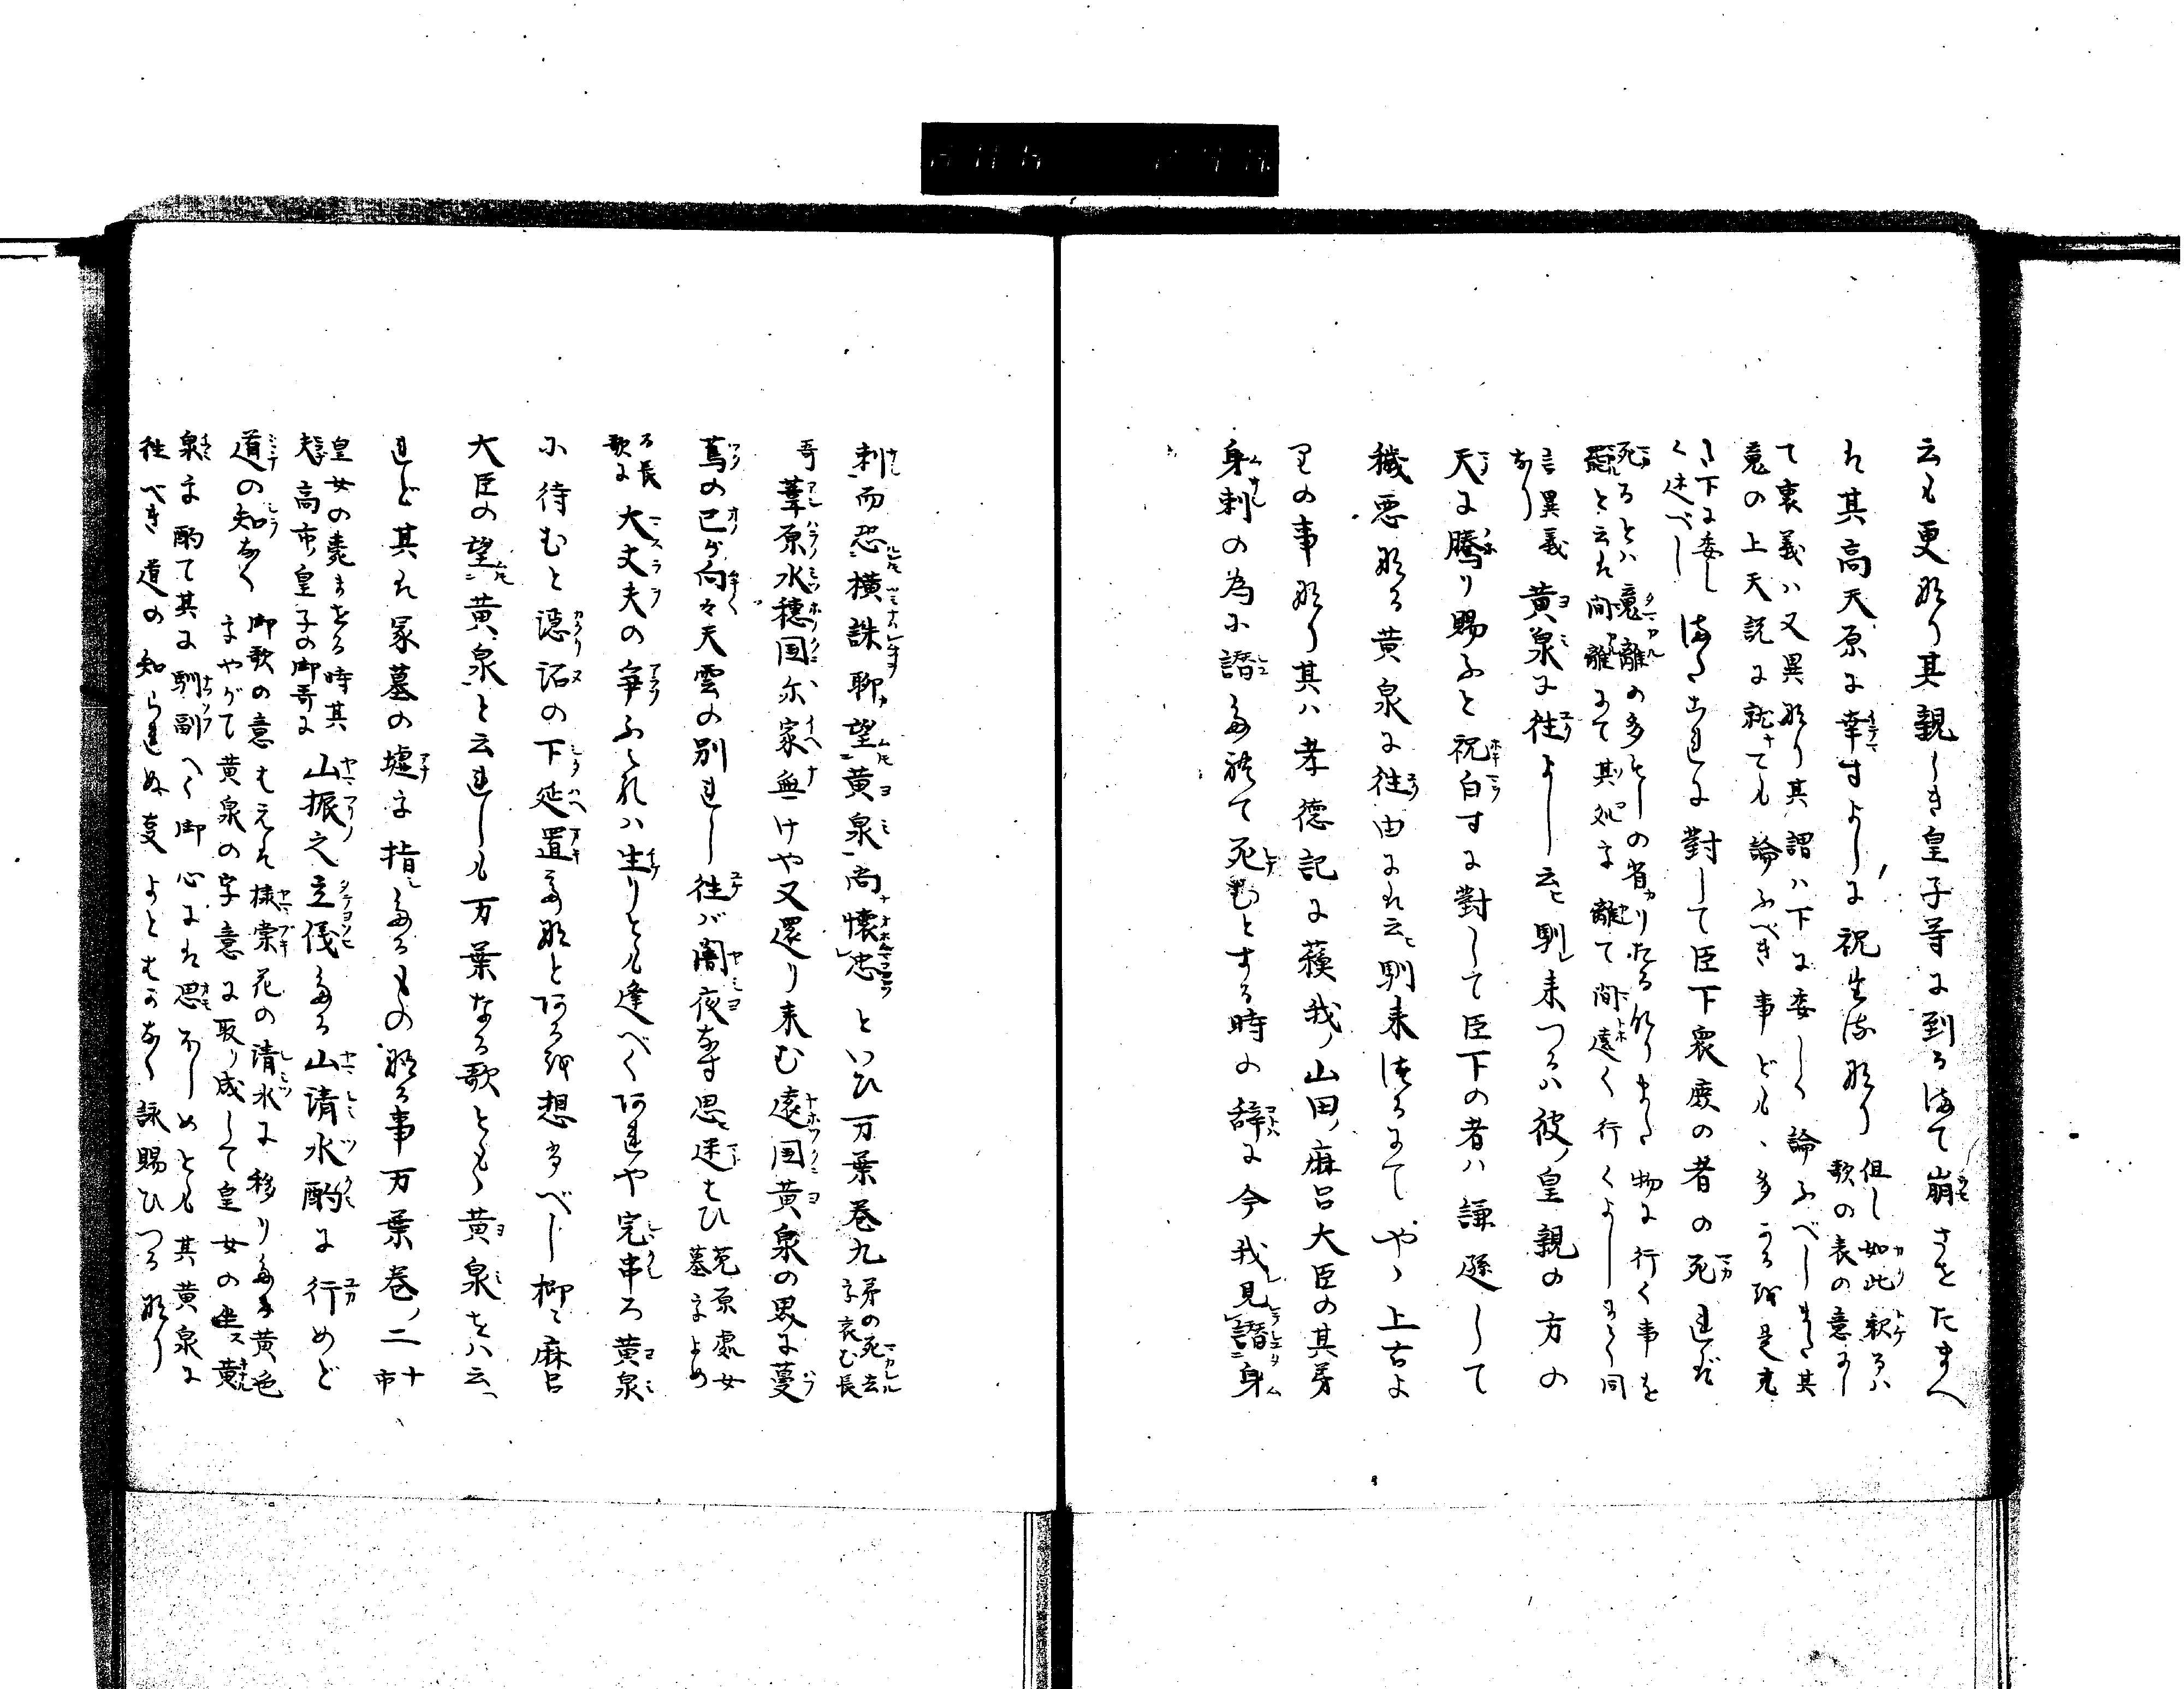 云も更なり其親しき皇子等に到るまて崩さをたまへ
れ其高天原に幸すよしに祝坐るなり但し如此釈るハ
歌の表の意にし
て裏義ハ又異なり其謂ハ下に委しく論ふべしまた其
意の上天説に就ても論ふべき事ども多かるを是先
下に委し
く述べし
またこれに對して臣下衆庶の者の死れば
死るとハ
離の多
の省りたるなりまた物に行く事を
と云れ間離にて其処を離て間遠く行くよしにく同
言異義
なり
黄泉に往よし云馴来つるハ彼皇親の方の
天に騰り賜ふと祝白すに對して臣下の者ハ謙遜して
穢悪なる黄泉に往由にれ云馴来つるにてやゝ上古よ
りの事なり其ハ孝徳記に蘇我ノ山田ノ麻呂大臣の其身
身刺の為に譖られて死むとする時の辞に今我見譖身
刺而恐横誅聊望黄泉尚懐忠といひ万葉巻九弟の死去
を哀む長
哥葦原水穂国尓家無けや又還り来む遠国黄泉の界に蔓
蔦の己が向々天雲の別れし往バ闇夜なす思迷とひ菟原處女
墓をよめ
る長
歌に
大丈夫の争ふ見れハ生りとも逢べくあれや宍串ろ黄泉
に待むと隠沼の下延置なとあるを想ふべし抑麻呂
大臣の望黄泉と云れしも万葉なる歌ともゝ黄泉とハ云
れど其れ冢墓の壚を指たるものなる事万葉巻ノ二十
市
皇女の薨ませる時其
夫高市ノ皇子の御哥に
山振之立儀たる山清水酌に行めど
道の知なく御歌の意もえれ棣棠花の清水に移りたる黄色
をやがて黄泉の字意に取り成して皇女の坐ス黄
泉を酌て其に馴副へく御心にれ思ほしめとも其黄泉に
往べき道の知られぬ変よとはかなく詠賜ひつるなり